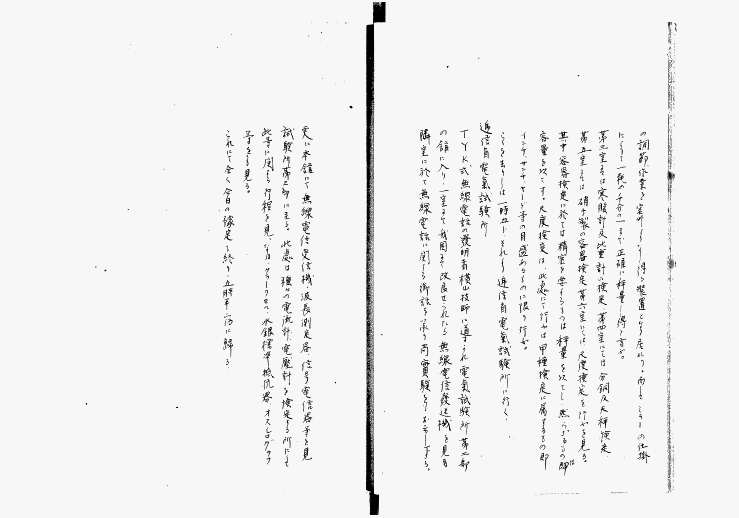 の調節作業を室外より行ひ得る装置となり居れり。而して ミラーの仕掛
によりて一瓩の千分の一まで正確に秤量し得と言ふ。
第七室には寒暖計及比重計の検定、第四室にては分銅及天秤検定
第五室には硝子製の容器検定、第六室にては尺度検定を行ふを見る。
其中容器検定に於ては精密を要するものは秤量を以てし、然らざるもの即
容量を以てす。尺度検定は此處にて行ふは甲種検定に属するもの即
インチ、サンチ、ヤード等の目盛あるものに限り行ふ。
こゝを去りしは一時五十 それより逓信省電氣試験所に行く。
逓信省電氣試験所
TYK式無線電話の發明者横山技師に導かれ電氣試験所第二部
の館に入り、一室にて我国にて改良せられたる無線電信發送機を見る
隣室に於て無線電話に関する御話を承り尚實験をも
更に本館にて無線電信受信機、波長測定器、信号電信器等を見
試験所第二部に至る。此處は種々の電流計、電壓計を検定する所にて
此等に関する行程を見、なほクラーク電池、水銀標準抵抗器、オスシログラフ
等をも見る。
これにて全く今日の豫定を終り、五時半 に歸る